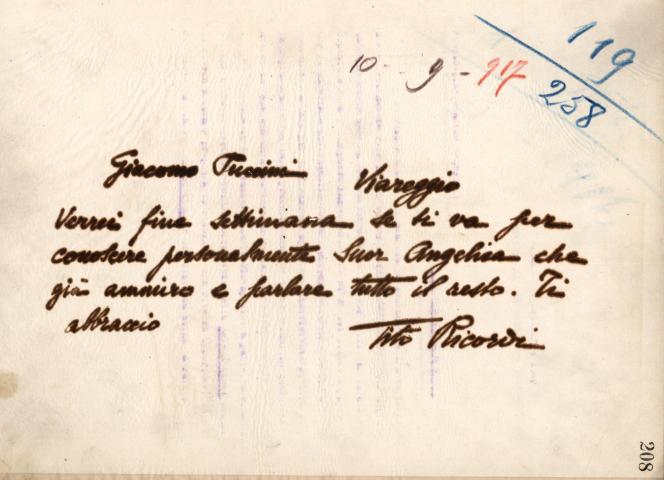 119
258
10 - 9 - 917
Giacomo Puccini Viareggio
Verrei fine settimana se ti va per
conoscere personalmente Suor Angelica che
già ammiro e parlare tutto il resto. Ti
abbraccio Tito Ricordi
208